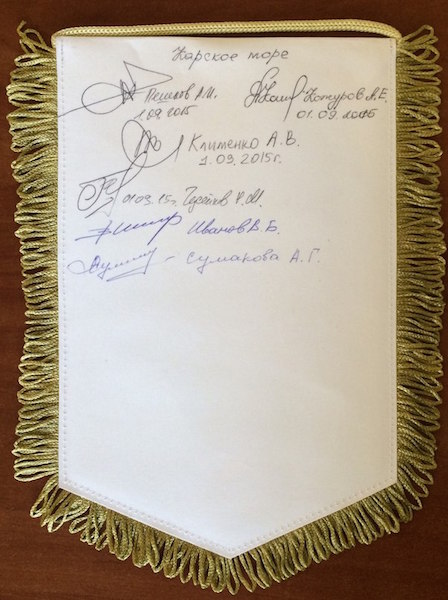 Карское море
Пешков А.И. Кожуров А.Е.
1.09.2015 01.09.2015
Клименко А.В.
1.09.2015г.
01.09.15г.
Иванов В.Б.
- Сумакова А.Г.